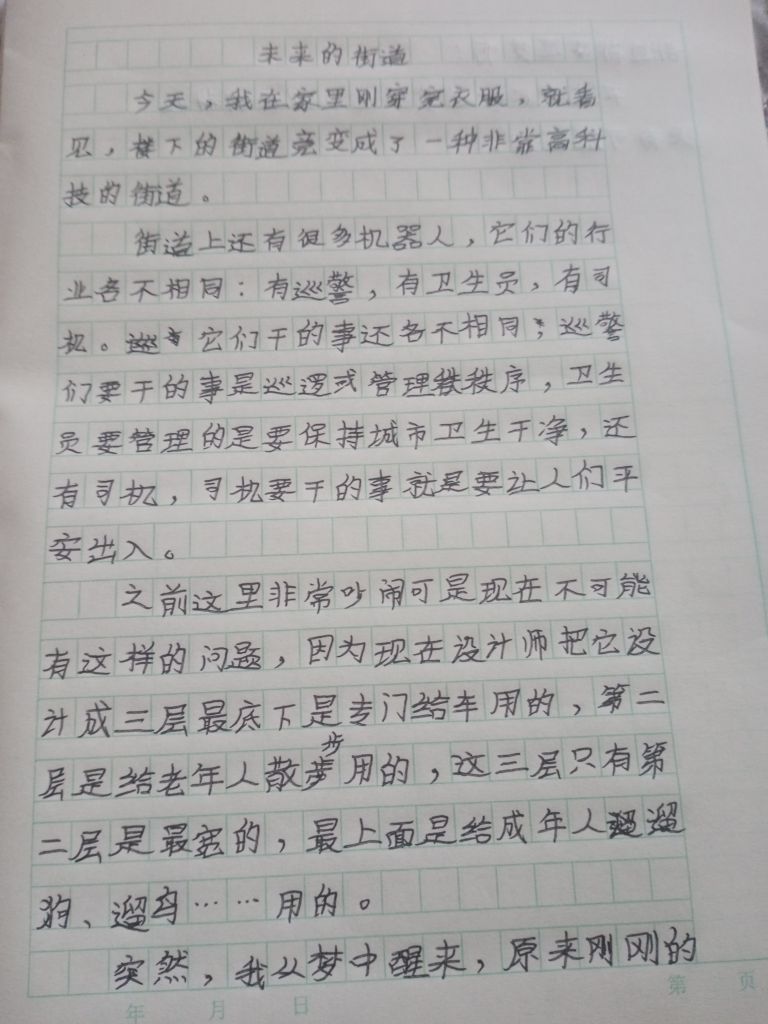 未来的街道
今天，我在家里刚穿完衣服，就看
见，楼下的街道竟变成了一种非常高科
技的街道。
街道上还有很多机器人，它们的行
业各不相同：有巡警，有卫生员，有司
机。它们干的事还各不相同；巡警
们要干的事是巡逻或管理秩序，卫生
员要管理的是要保持城市卫生干净，还
有司机，司机要干的事就是要让人们平
安出入。
之前这里非常吵闹可是现在不可能
有这样的问题，因为现在设计师把它设
计成三层最底下是专门给车用的，第二
层是给老年人散步用的，这三层只有第
二层是最宽的，最上面是给成年人遛
狗、遛鸟……用的。
突然，我从梦中醒来，原来刚刚的
年 月 日
第 页